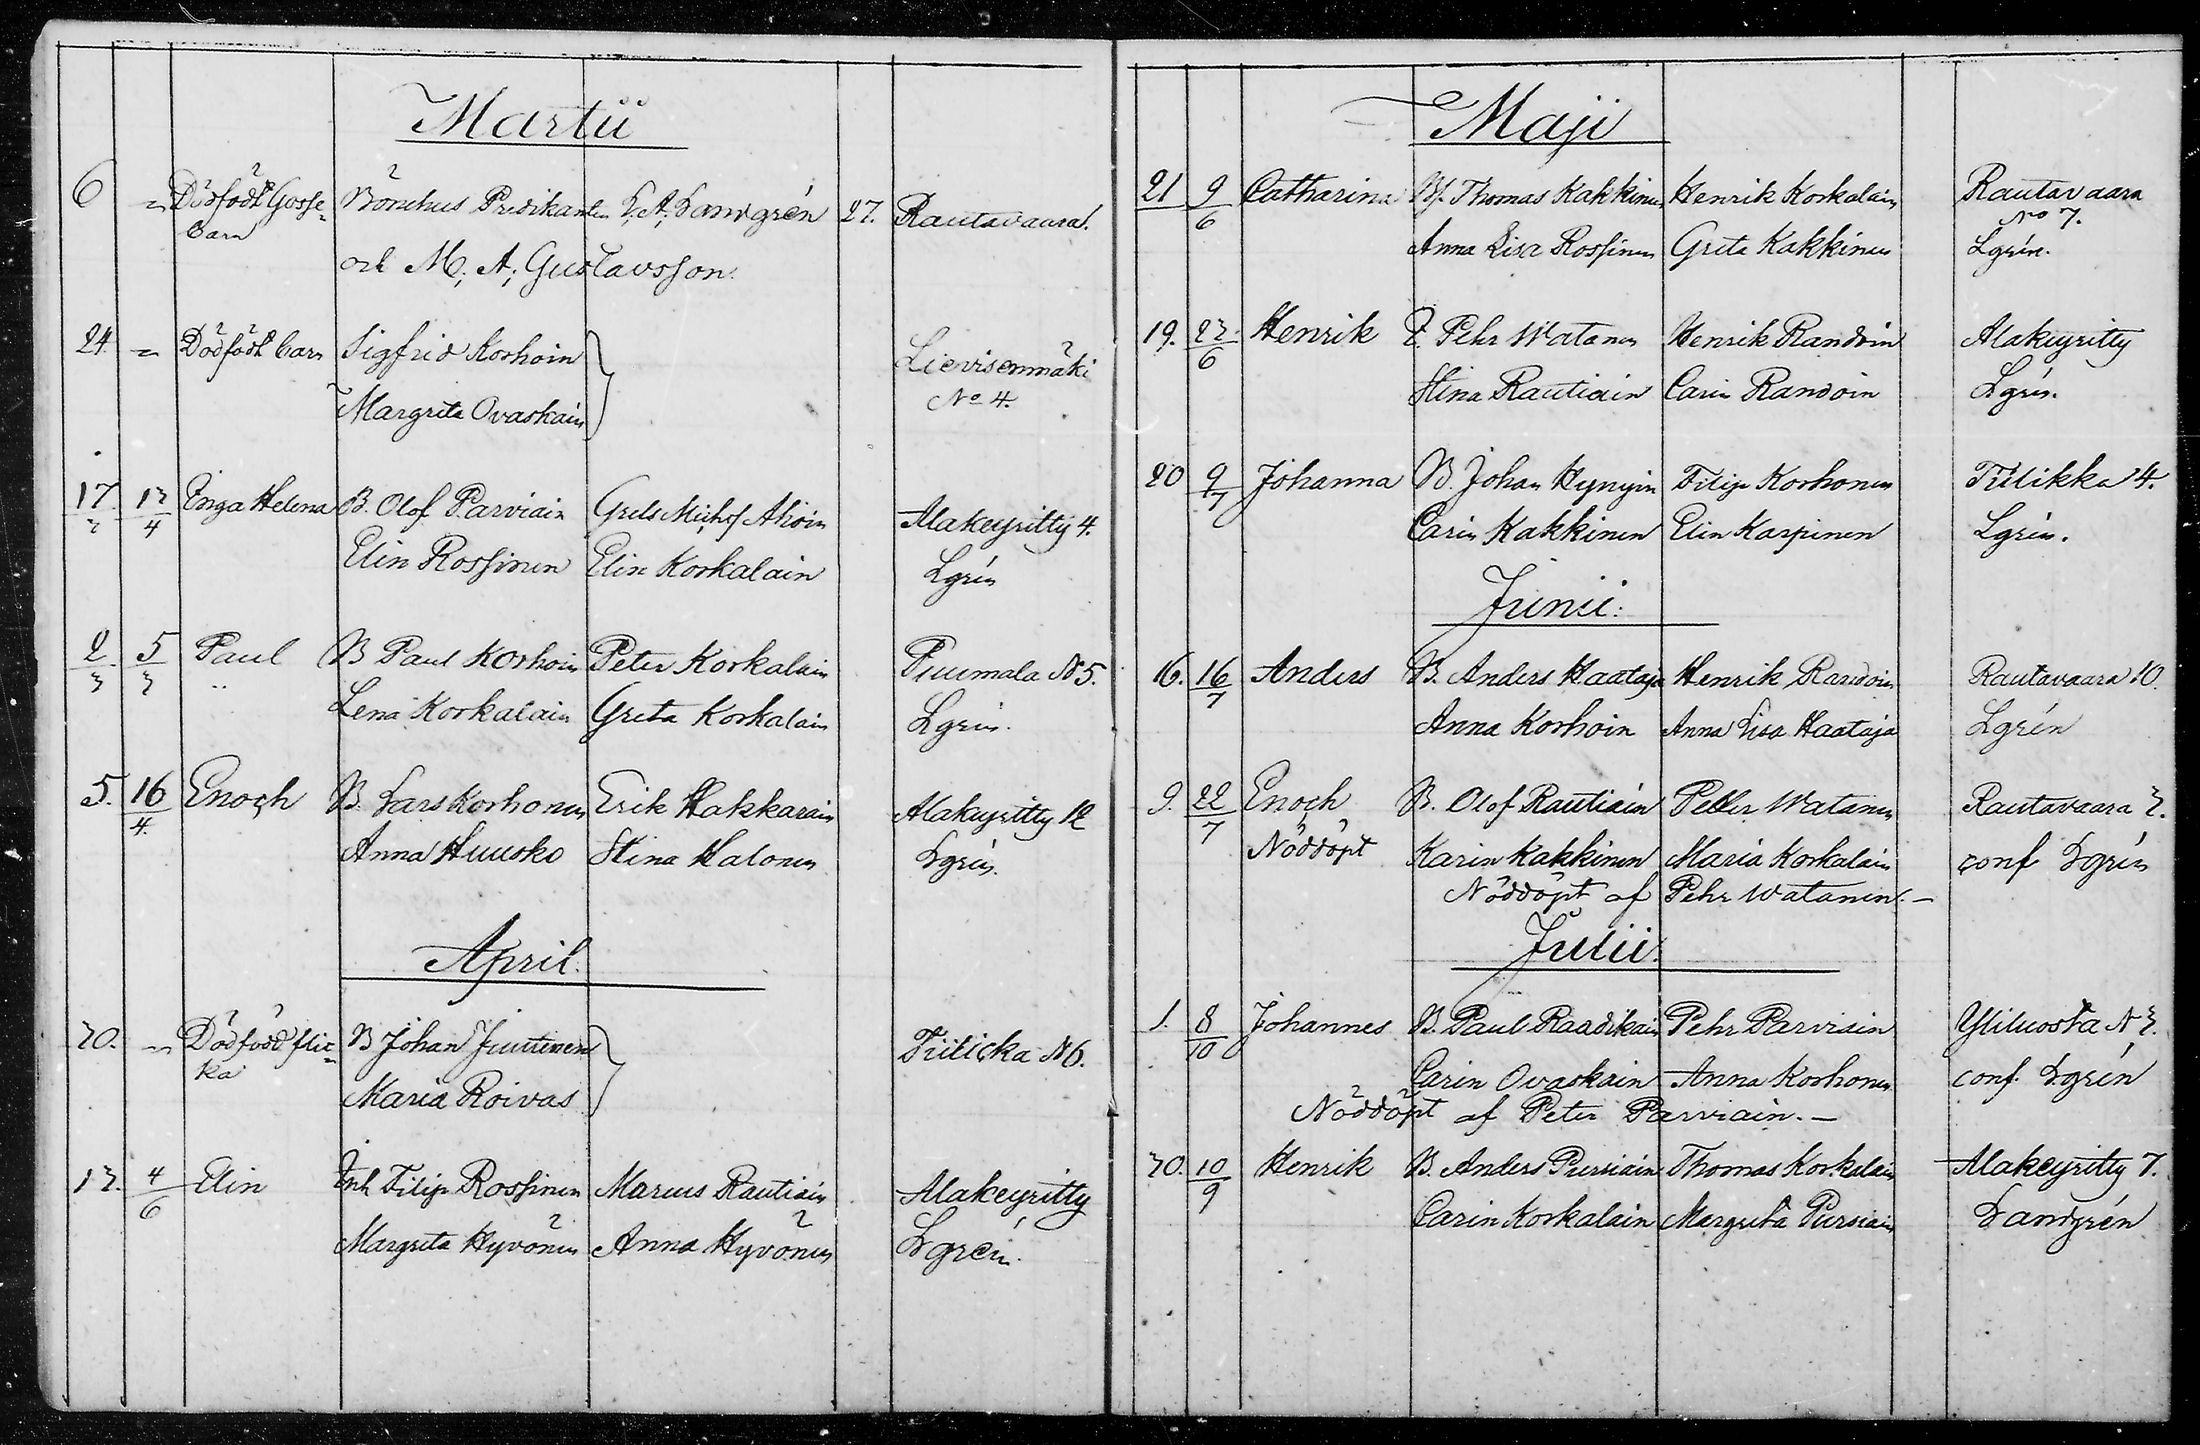 Martii
6 = Dödfödt Gosse= Bönehus Predikanten L. A. Landgrén 27. Rautavaara.
barn
och M. A. Gustavsson.
24. = Dödfödt barn Sigfrid Korhoin Lievisenmäki
Margreta Ovaskain No 4.
17/3 13/4 Inga Helena B. Olof Parviain Ahoin Alakeyritty 4.
Elin Rossinen Elin Korkalain Lgrén
2/3 5/3 Paul B Paul Korhoin Peter Korkalain Puumala N 5.
Lena Korkalain Greta Korkalain Lgrén.
5. 16/4. Enoch B. Lars Korhonen Erik Hakkarain Alakeyritty 12
Anna Huusko Stina Halonen Lgrén.
April.
30. = Dödfödd flic= B Johan Juutinen Tiilicka N 6.
ka Maria Roivas
13. 4/6 Elin Inh Filip Rossinen Marcus Rautiain Alakeyritty
Margreta Hyvönen Anna Hyvönen Lgrén.
Maji
21 9/6 Catharina Bf. Thomas Kakkinen Henrik Korkalain Rautavaara
No 7.
Anna Lisa Rossinen Greta Kakkinen Lgrén.
19. 23/6 Henrik T. Pehr Watanen Henrik Randoin Alakeyritty
Stina Rautiain Carin Randoin Lgrén.
20 9/7 Johanna B. Johan Hyngin Filip Korhonen Tiilikka 4.
Carin Kakkinen Elin Karpinen Lgrén.
Junii:
16. 16/7 Anders B. Anders Haataja Henrik Randoin Rautavaara 10.
Anna Korhoin Anna Lisa Haataja Lgrén
9. 22/7 Enoch B. Olof Rautiain Petter Watanen Rautavaara 3.
Nöddöpt Karin Kakkinen Maria Korkalain conf Lgrén
Nöddöpt af Pehr Watanen. —
Julii.
1. 8/10 Johannes B. Paul Raadikain Pehr Parviain Yliluosta N 3.
Carin Ovaskain Anna Korhonen conf. Lgrén
Nöddöpt af Peter Parviain. —
30. 10/9 Henrik B. Anders Pursiain Thomas Korkalain Alakeyritty 7.
Carin Korkalain Margreta Pursiain Landgrén